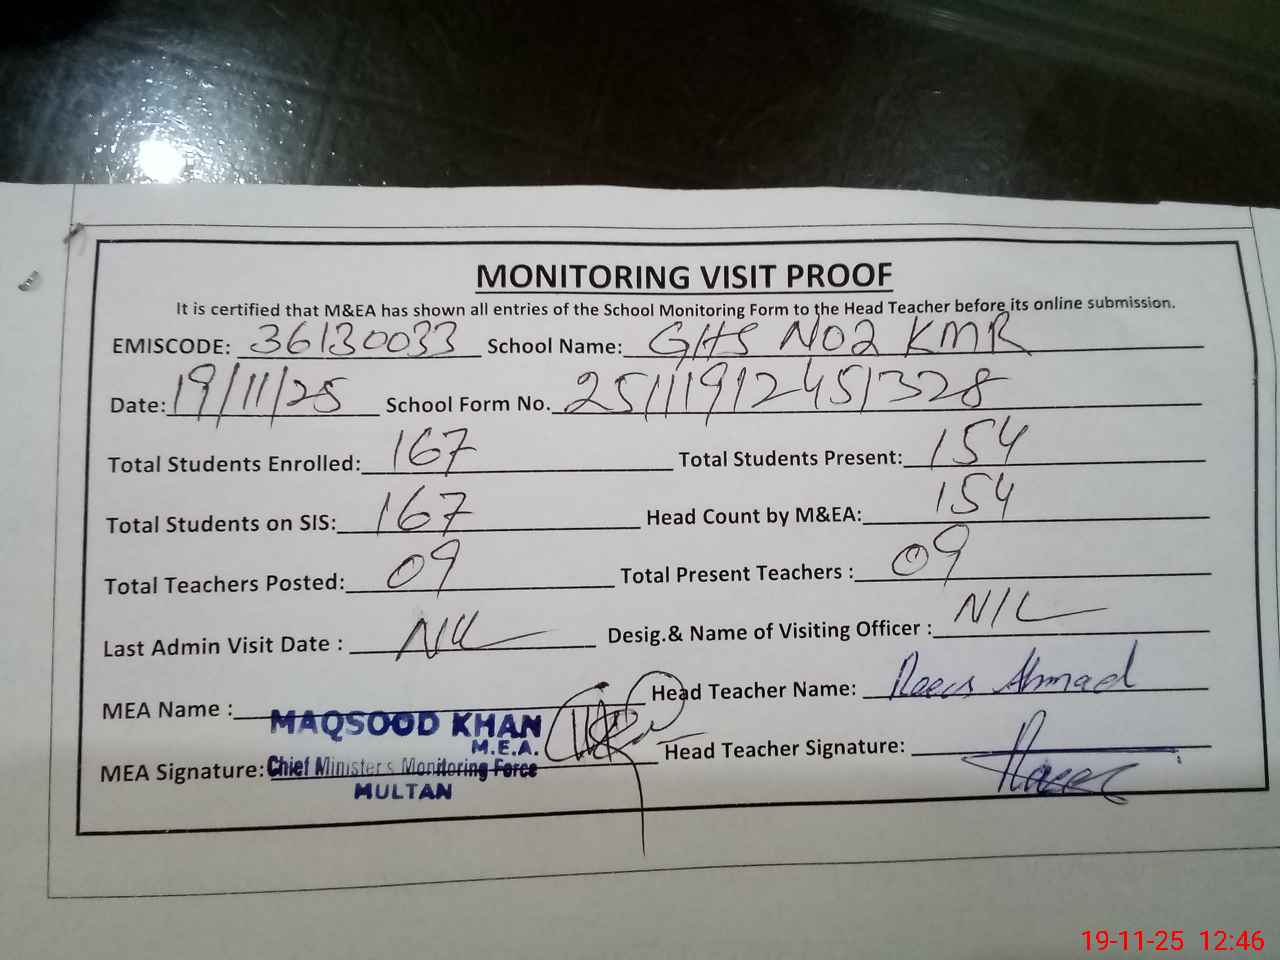 MONITORING VISIT PROOF
It is certified that M&EA has shown all entries of the School Monitoring Form to the Head Teacher before its online submission.
EMISCODE: 36130033 School Name: GHS NO2 KMR
Date: 19/11/25 School Form No. 25111912451328
Total Students Enrolled: 167 Total Students Present: 154
Total Students on SIS: 167 Head Count by M&EA: 154
Total Teachers Posted: 09 Total Present Teachers : 09
Last Admin Visit Date : NIL Desig.& Name of Visiting Officer : NIL
MEA Name : MAQSOOD KHAN Head Teacher Name: Raees Ahmad
M.E.A.
MEA Signature: Chief Minister's Monitoring Force Head Teacher Signature:
MULTAN
19-11-25 12:46